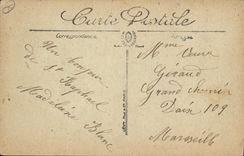 Carte Postale
Correspondance
Un bonjour
de St Raphael
Madeleine Blanc
Mme
Giraud
Grand Chemin
109
Marseille